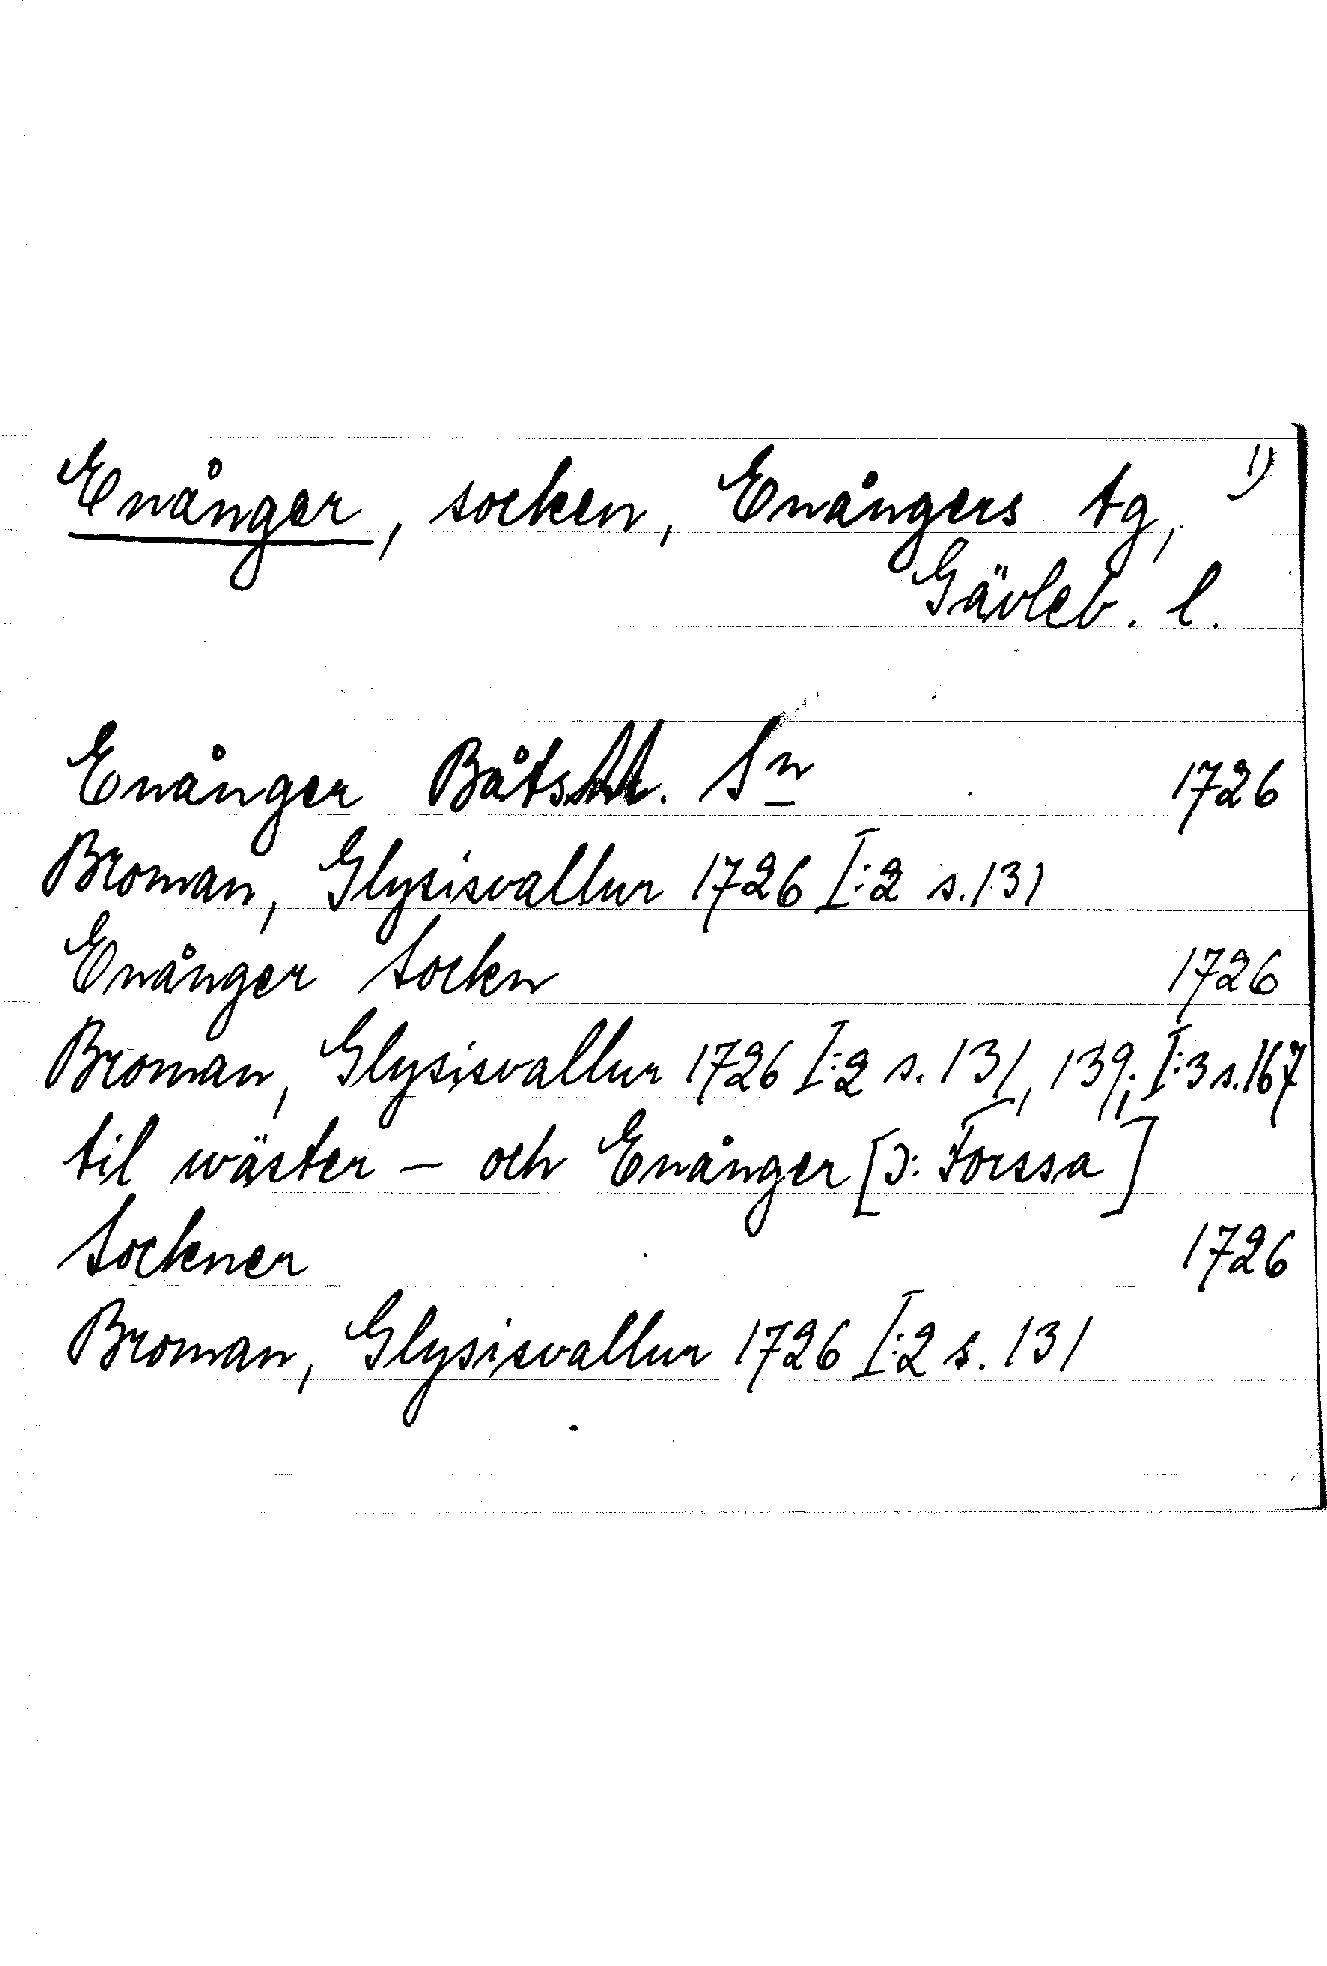 Enånger, socken, Enångers tg, 1)
Gävleb. l.
Enånger Båtsht. Sn 1726
Broman, Glysisvallur 1726 I:2 s. 131
Enånger Sockn 1726
Broman, Glysisvallur 1726 I:2 s. 131, 139; I:3 s. 167
til wäster – och Enånger [ɔ: Forssa]
Sockner 1726
Broman, Glysisvallur 1726 I:2 s. 131